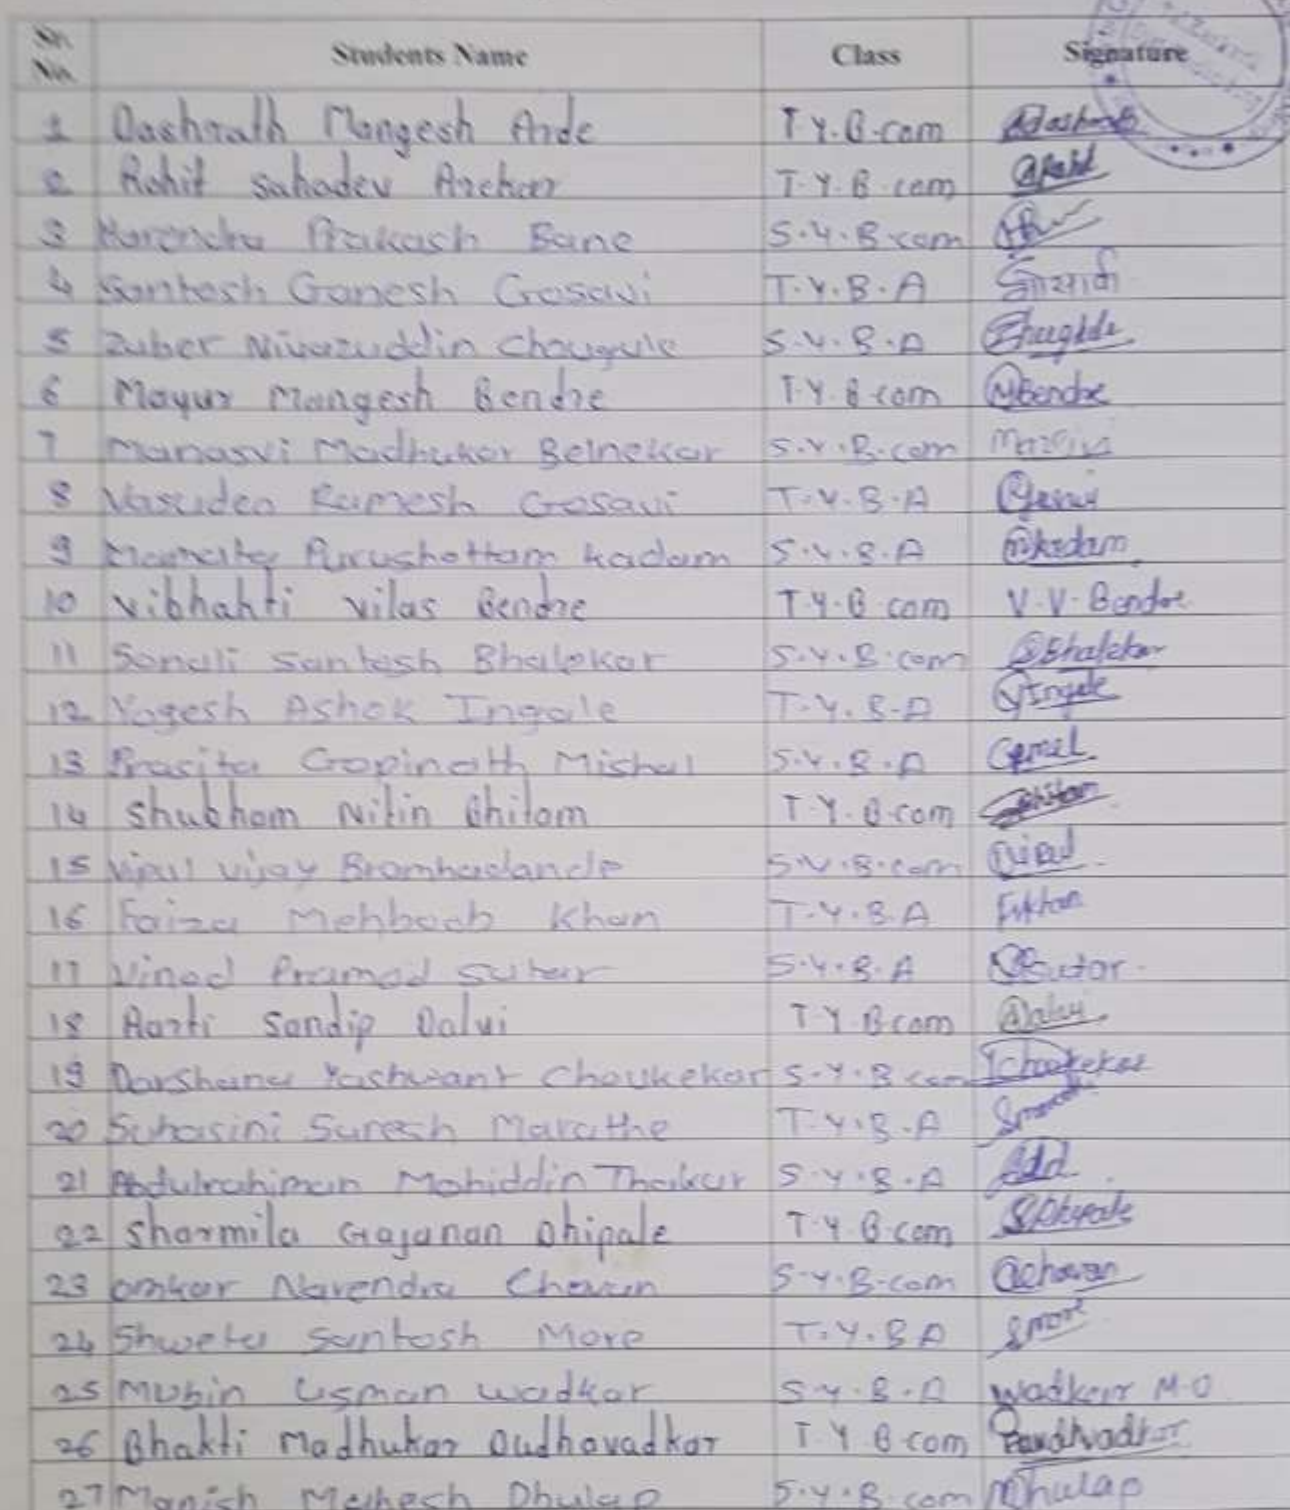 Sr. No. Students Name Class Signature
1 Dashrath Mangesh Arde T.Y.B.com
2 Rohit Sahadev Archar T.Y.B.com
3 Prakash Bane S.Y.B.com
4 Santosh Ganesh Gosavi T.Y.B.A गोसावी
5 Zuber Chougule S.Y.B.A
6 Mayur Mangesh Bendre T.Y.B.com MBendre
7 Manasvi Madhukar Belnekar S.Y.B.com
8 Vasudeo Ramesh Gosavi T.Y.B.A
9 Mamata Purushottam Kadam S.Y.B.A mkadam
10 Vibhakti Vilas Bendre T.Y.B.com V.V.Bendre
11 Sonali Santosh Bhalekar S.Y.B.com SBhalekar
12 Yogesh Ashok Ingale T.Y.B.A YIngale
13 Prasita Gopinath Mishal S.Y.B.A
14 Shubham Nitin Bhitam T.Y.B.com
15 Vipul Vijay Bramhadande S.Y.B.com Vipul
16 Faiza Mehboob Khan T.Y.B.A
17 Vinod Pramod Sutar S.Y.B.A Sutar
18 Aarti Sandip Dalvi T.Y.B.com Dalvi
19 Darshana Yashwant Choukekar S.Y.B.com
20 Suhasini Suresh Marathe T.Y.B.A
21 Abdulrahiman Mohiddin Thakur S.Y.B.A
22 Sharmila Gajanan Dhipale T.Y.B.com SDhipale
23 Omkar Narendra Chavan S.Y.B.com
24 Shweta Santosh More T.Y.B.A Smore
25 Mubin Usman Wadkar S.Y.B.A Wadkar M.O
26 Bhakti Madhukar Dudhavadkar T.Y.B.com
27 Manish Mahesh Dhulap S.Y.B.com MDhulap